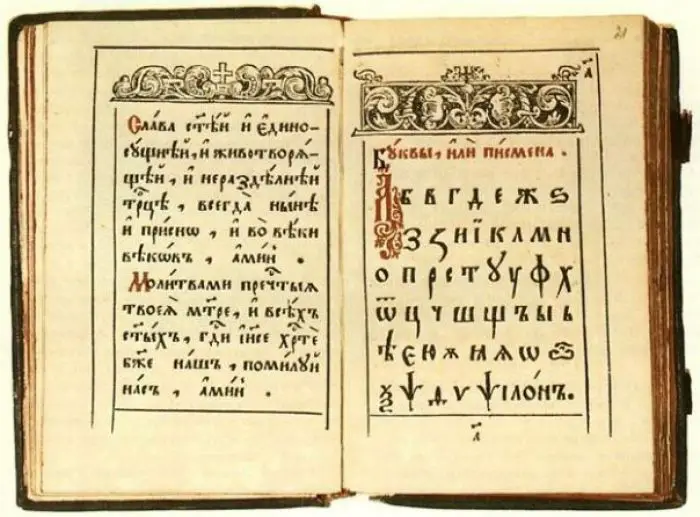 21
а҃
Сла́ва ст҃ѣ́й и҆ є҆дино-
сꙋ́щнѣй, и҆ животворѧ́-
щѣй, и҆ нераздѣ́лнѣй
трⷪ҇цѣ, всегда̀ ны́нѣ
и҆ при́снѡ, и҆ во̀ вѣ́ки
вѣкѡ́въ, а҆ми́нь.
Моли́твами пречⷭ҇тыѧ
твоеѧ̀ мт҃ре, и҆ всѣ́хъ
ст҃ы́хъ, гдⷭ҇и і҆и҃се хрⷭ҇те
бж҃е на́шъ, поми́лꙋй
на́съ, а҆ми́нь.
Бꙋ́квы, и҆лѝ пи́смена.
А Б В Г Д Е Ж Ѕ
З Ꙁ И Ї К Л М Н
О П Р С Т Ꙋ У Ф Х
Ѿ Ц Ч Ш Щ Ъ Ы Ь
Ѣ Є Ю Ѫ Ꙗ Ѧ Ѡ
Ѯ Ѱ Ѳ Ѵ Ѱїло́нъ.
а҃